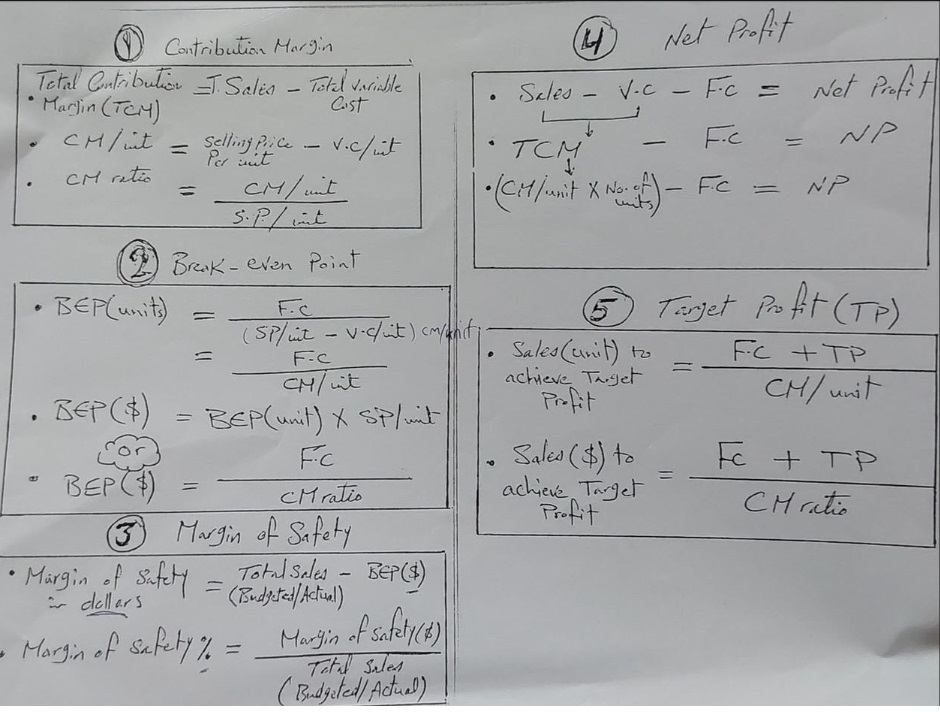 ① Contribution Margin
Total Contribution = T. Sales - Total Variable
• Margin (TCM) Cost
• CM/unit = Selling Price - V.C/unit
Per unit
• CM ratio = CM/unit
S.P/unit
② Break-even Point
• BEP(units) = F.C
(SP/unit - V.C/unit) CM/unit
= F.C
CM/unit
• BEP($) = BEP(unit) X SP/unit
or
• BEP($) = F.C
CM ratio
③ Margin of Safety
• Margin of Safety = Total Sales - BEP($)
in dollars (Budgeted/Actual)
• Margin of Safety % = Margin of Safety($)
Total Sales
(Budgeted/Actual)
④ Net Profit
• Sales - V.C - F.C = Net Profit
• TCM - F.C = NP
• (CM/unit X No. of - F.C = NP
units)
⑤ Target Profit (TP)
• Sales(unit) to = F.C + TP
achieve Target CM/unit
Profit
• Sales($) to = FC + TP
achieve Target CM ratio
Profit